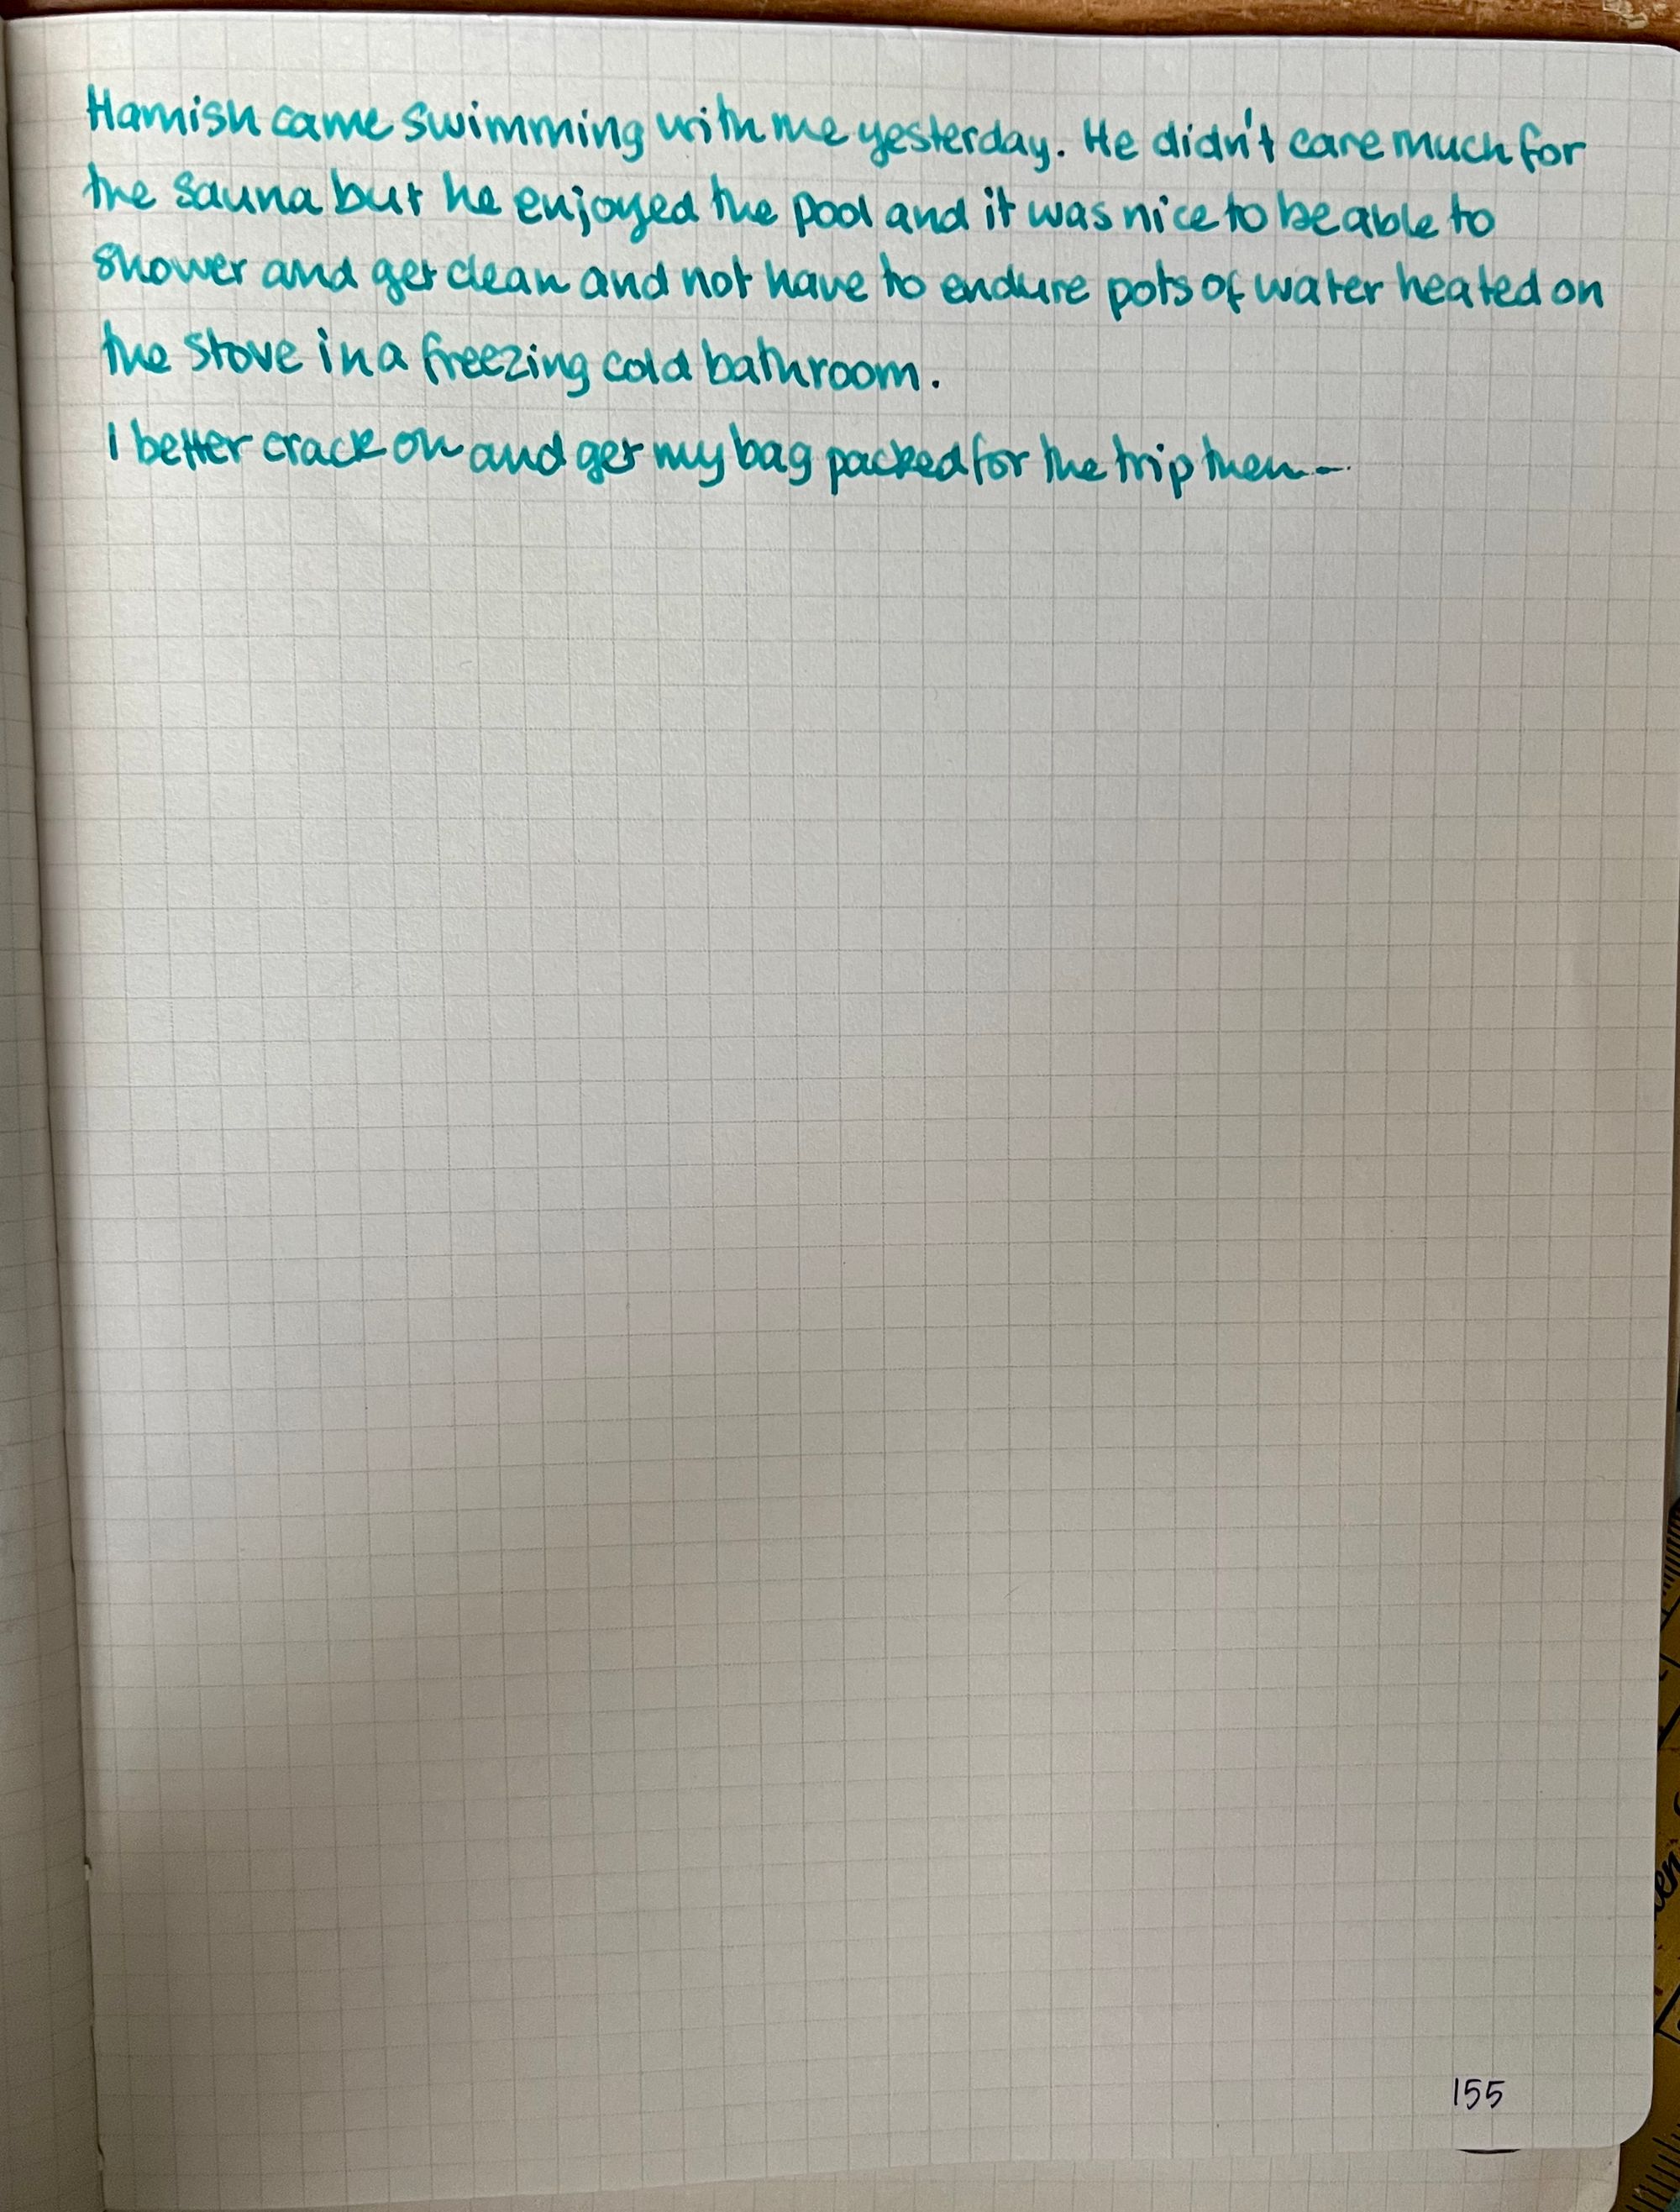 Hamish came swimming with me yesterday. He didn't care much for
the sauna but he enjoyed the pool and it was nice to be able to
shower and get clean and not have to endure pots of water heated on
the stove in a freezing cold bathroom.
I better crack on and get my bag packed for the trip then--
155